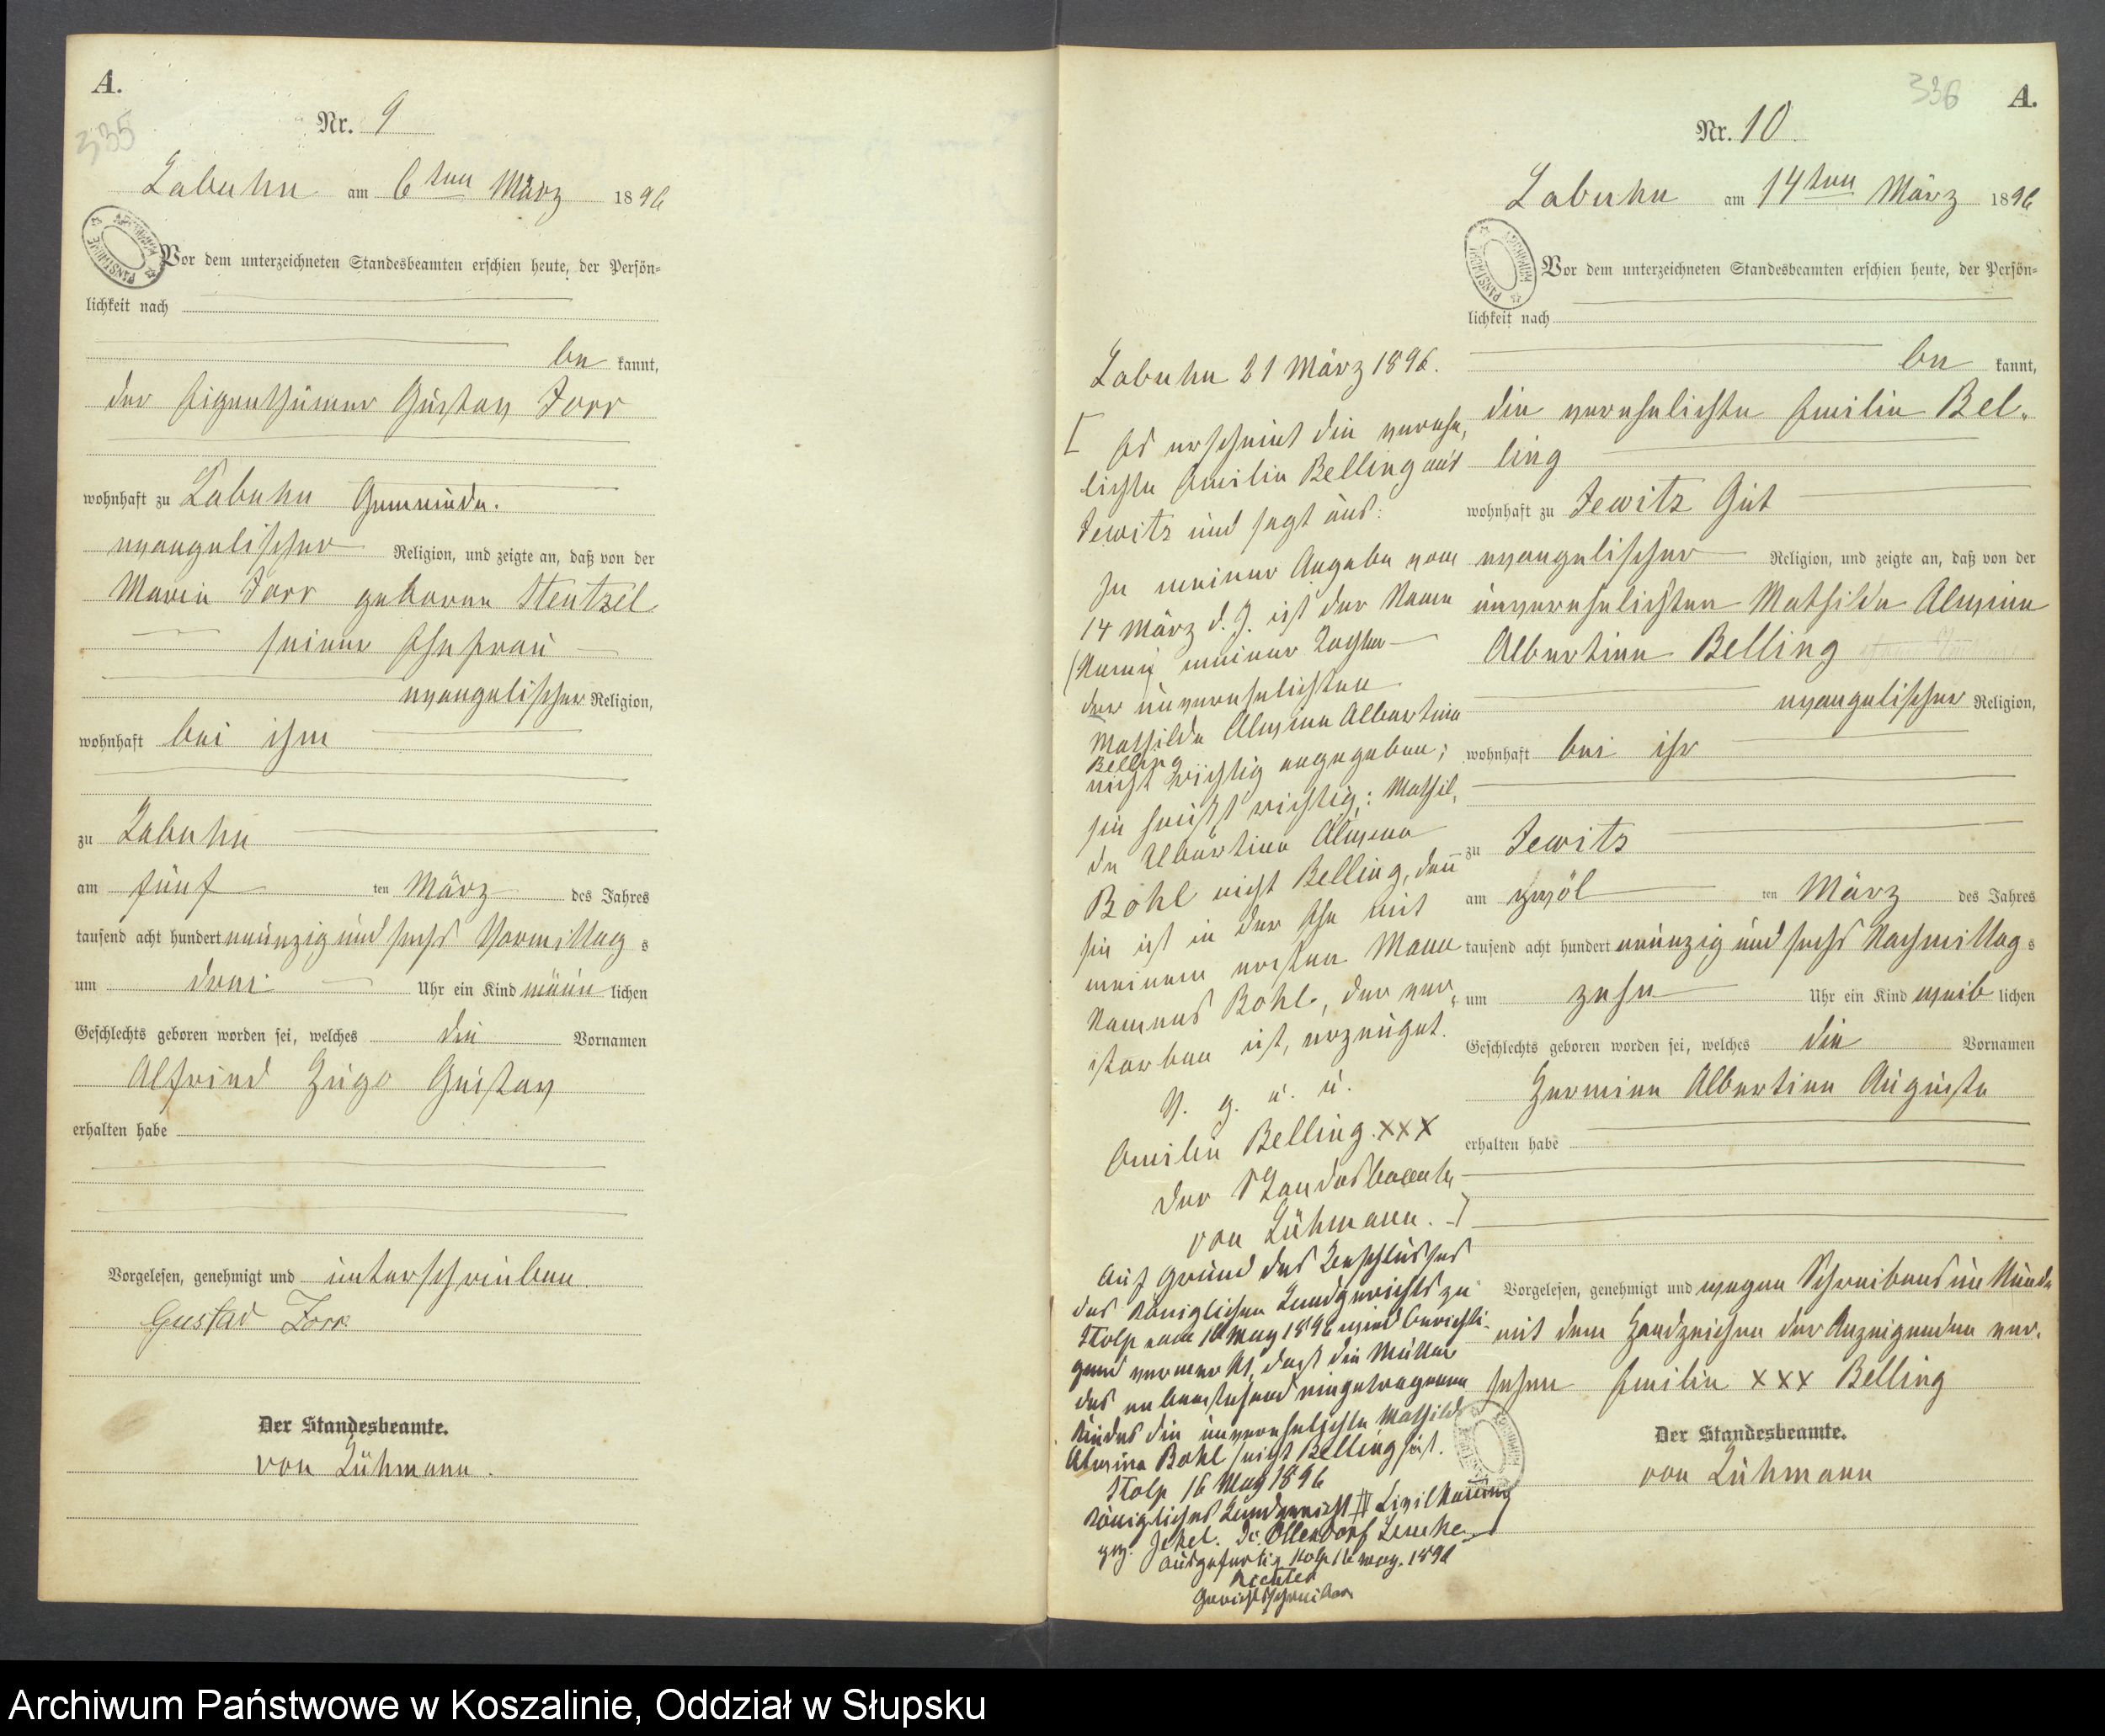 A.
335
Nr. 9
Labuhn am 6ten März 1896
Vor dem unterzeichneten Standesbeamten erschien heute, der Persön=
lichkeit nach
be kannt,
der Eigenthümer Gustav Jorr
wohnhaft zu Labuhn Gemeinde.
evangelischer Religion, und zeigte an, daß von der
Marie Jorr geborene Stentzel
seiner Ehefrau
evangelischer Religion,
wohnhaft bei ihm
zu Labuhn
am fünf ten März des Jahres
tausend acht hundert neunzig und sechs Vormittag s
um drei Uhr ein Kind männ lichen
Geschlechts geboren worden sei, welches die Vornamen
Alfried Hugo Gustav
erhalten habe
Vorgelesen, genehmigt und unterschrieben.
Gustav Jorr
Der Standesbeamte.
von Lühmann.
336
A.
Nr. 10
Labuhn am 14ten März 1896
Vor dem unterzeichneten Standesbeamten erschien heute, der Persön=
lichkeit nach
be kannt,
die verehelichte Emilie Bel-
ling
wohnhaft zu Jewitz Gut
evangelischer Religion, und zeigte an, daß von der
unverehelichten Mathilde Alwine
Albertine Belling
evangelischer Religion,
wohnhaft bei ihr
zu Jewitz
am zwöl ten März des Jahres
tausend acht hundert neunzig und sechs Nachmittag s
um zehn Uhr ein Kind weib lichen
Geschlechts geboren worden sei, welches die Vornamen
Hermine Albertine Auguste
erhalten habe
Vorgelesen, genehmigt und wegen Schreibens un Kunde
mit dem Handzeichen der Anzeigenden ver-
sehen Emilie xxx Belling
Der Standesbeamte.
von Lühmann
Labuhn 21 März 1896.
[ Es erscheint die verehe-
lichte Emilie Belling aus
Jewitz und sagt aus:
In meiner Angabe vom
14 März d. J. ist der Name
meiner Tochter
der unverehelichten
Mathilde Alwine Albertine
Belling
nicht richtig angegeben;
sie heißt richtig: Mathil-
de Albertine Alwine
Bohl nicht Belling, denn
sie ist in der Ehe mit
meinem ersten Mann
Namens Bohl, der ver-
storben ist, erzeuget.
V. g. u. u.
Emilie Belling. xxx
Der Standesbeamte
von Lühmann. ]
Auf Grund des Beschlusses
des Königlichen Landgerichts zu
Stolp vom May 1896 wird berichti-
gend vermerkt, daß die Mutter
des nebenstehend eingetragenen
Kindes die unverehelichte Mathilde
Alwine Bohl nicht Belling ist.
Stolp 16 May 1896
Königliches Landgericht II Civilkammer
gez. Jekel. Dr. Ollendorf
Ausgefertigt Stolp 16 May. 1896
Richter
Gerichtsschreiber
Archiwum Państwowe w Koszalinie, Oddział w Słupsku